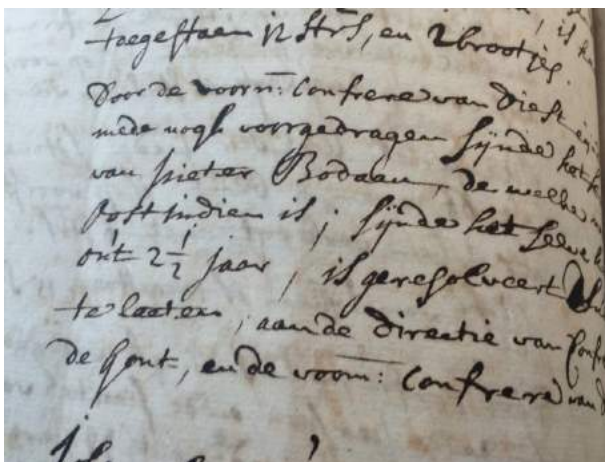 toegestaen 12 Strs, en 2 brootjes.
Door de voorn: Confrere van Diest
mede nogh voorgedragen sijnde het
van pieter Bodaan, de welke
Oostindien is; sijnde het selve
ont 2½ jaar, is geresolveert
te laaten, aan de Directie van
de Gont, en de voorn: Confrere van